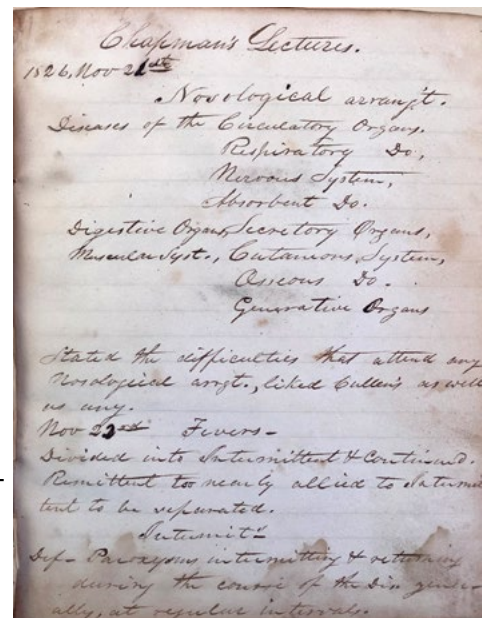 Chapman's Lectures.
1826, Nov 21st
Nosological arrangt.
Diseases of the Circulatory Organs.
Respiratory Do.,
Nervous System,
Absorbent Do.
Digestive Organs, Secretory Organs,
Muscular Syst., Cutaneous System,
Osseous Do.
Generative Organs
Stated the difficulties that attend any
Nosological arrgt., liked Cullen's as well
as any.
Nov 22nd Fevers-
Divided into Intermittent & Continued.
Remittent too nearly allied to Intermit
tent to be separated.
Intermitts
Def- Paroxysms intermitting & returning
during the course of the Dis. gener-
ally, at regular intervals.